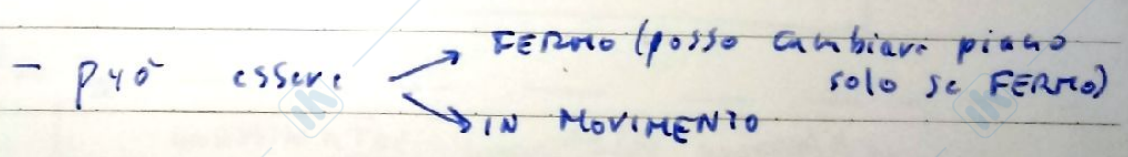 - può essere → FERMO (posso cambiare piano
solo se FERMO)
→ IN MOVIMENTO